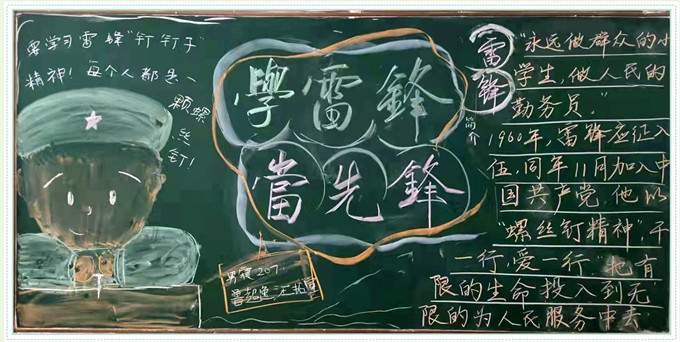 要学习雷锋“钉钉子”
精神！每个人都是一
颗螺
丝
钉！
學雷鋒
當先鋒
男寝207
雷锋
简介
“永远做群众的小
学生，做人民的
勤务员。”
1960年，雷锋应征入
伍，同年11月加入中
国共产党，他以
“螺丝钉精神”，干
一行，爱一行，“把有
限的生命投入到无
限的为人民服务中去